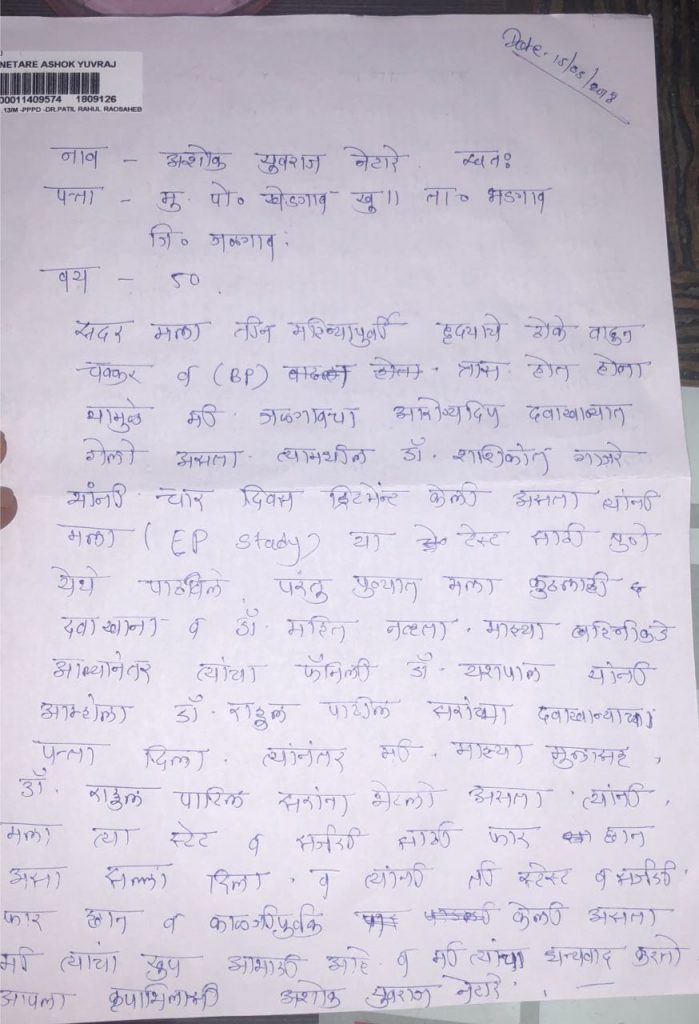 NETARE ASHOK YUVRAJ
00011409574 1809126
13/M -PPPD -DR.PATIL RAHUL RAOSAHEB
Date. 15/05/2018
नाव - अशोक युवराज नेटारे. स्वतः
पत्ता - मु. पो० खेडगाव खु॥ ता० भडगाव
जि० जळगाव.
वय - 50
सदर मला तीन महिन्यापुर्वी हृदयाचे ठोके वाढुन
चक्कर व (BP) त्रास होत होता
यामुळे मी. जळगावच्या आरोग्यदिप दवाखान्यात
गेलो असता. त्यामधील डॉ. शशिकांत गाजरे
यांनी चार दिवस ट्रिटमेंन्ट केली असता त्यांनी
मला (EP Study) या टेस्ट साठी पुणे
येथे पाठविले. परंतु पुण्यात मला कुठलाही
दवाखाना व डॉ. महित नव्हता. माझ्या बहिनीकडे
आल्यानंतर त्यांचा फॅमिली डॉ. यशपाल यांनी
आम्हाला डॉ. राहुल पाटील सरांच्या दवाखान्याचा
पत्ता दिला. त्यांनंतर मी. माझ्या मुलासह,
डॉ. राहुल पाटिल सरांना भेटलो असता त्यांनी,
मला त्या स्टेट व सर्जरी साठी फार छान
असा सल्ला दिला. व त्यांनी ती स्टेस्ट व सर्जरी
फार छान व काळजीपुर्वक केली असता
मी त्यांचा खुप आभारी आहे. व मी त्यांचा धन्यवाद करतो
आपला कृपाभिलाषी अशोक युवराज नेटारे.